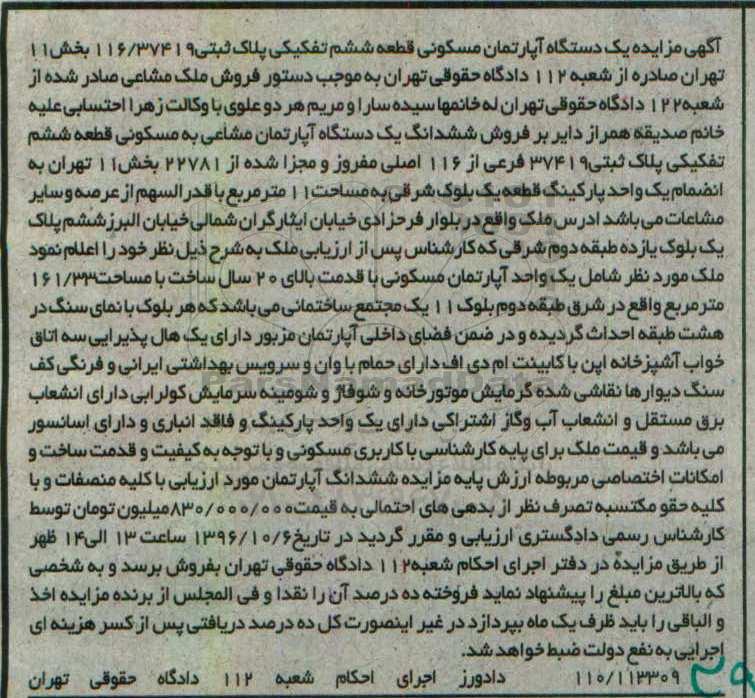 آگهی مزایده یک دستگاه آپارتمان مسکونی قطعه ششم تفکیکی پلاک ثبتی۱۱۶/۳۷۴۱۹ بخش۱۱
تهران صادره از شعبه ۱۱۲ دادگاه حقوقی تهران به موجب دستور فروش ملک مشاعی صادر شده از
شعبه۱۲۲ دادگاه حقوقی تهران له خانمها سیده سارا و مریم هر دو علوی با وکالت زهرا احتسابی علیه
خانم صدیقه همراز دایر بر فروش ششدانگ یک دستگاه آپارتمان مشاعی به مسکونی قطعه ششم
تفکیکی پلاک ثبتی۳۷۴۱۹ فرعی از ۱۱۶ اصلی مفروز و مجزا شده از ۲۲۷۸۱ بخش۱۱ تهران به
انضمام یک واحد پارکینگ قطعه یک بلوک شرقی به مساحت۱۱ متر مربع با قدر السهم از عرصه و سایر
مشاعات می باشد ادرس ملک واقع در بلوار فرحزادی خیابان ایثارگران شمالی خیابان البرز ششم پلاک
یک بلوک یازده طبقه دوم شرقی که کارشناس پس از ارزیابی ملک به شرح ذیل نظر خود را اعلام نمود
ملک مورد نظر شامل یک واحد آپارتمان مسکونی با قدمت بالای ۲۰ سال ساخت با مساحت۱۶۱/۳۳
متر مربع واقع در شرق طبقه دوم بلوک ۱۱ یک مجتمع ساختمانی می باشد که هر بلوک با نمای سنگ در
هشت طبقه احداث گردیده و در ضمن فضای داخلی آپارتمان مزبور دارای یک هال پذیرایی سه اتاق
خواب آشپزخانه اپن با کابینت ام دی اف دارای حمام با وان و سرویس بهداشتی ایرانی و فرنگی کف
سنگ دیوارها نقاشی شده گرمایش موتورخانه و شوفاژ و شومینه سرمایش کولرابی دارای انشعاب
برق مستقل و انشعاب آب وگاز اشتراکی دارای یک واحد پارکینگ و فاقد انباری و دارای اسانسور
می باشد و قیمت ملک برای پایه کارشناسی با کاربری مسکونی و با توجه به کیفیت و قدمت ساخت و
امکانات اختصاصی مربوطه ارزش پایه مزایده ششدانگ آپارتمان مورد ارزیابی با کلیه منصفات و با
کلیه حقو مکتسبه تصرف نظر از بدهی های احتمالی به قیمت۸۳۰/۰۰۰/۰۰۰میلیون تومان توسط
کارشناس رسمی دادگستری ارزیابی و مقرر گردید در تاریخ۱۳۹۶/۱۰/۶ ساعت ۱۳ الی۱۴ ظهر
از طریق مزایده در دفتر اجرای احکام شعبه۱۱۲ دادگاه حقوقی تهران بفروش برسد و به شخصی
که بالاترین مبلغ را پیشنهاد نماید فروخته ده درصد آن را نقدا و فی المجلس از برنده مزایده اخذ
و الباقی را باید ظرف یک ماه بپردازد در غیر اینصورت کل ده درصد دریافتی پس از کسر هزینه ای
اجرایی به نفع دولت ضبط خواهد شد.
۱۱۰/۱۱۳۳۰۹ دادورز اجرای احکام شعبه ۱۱۲ دادگاه حقوقی تهران
ParsNamadData